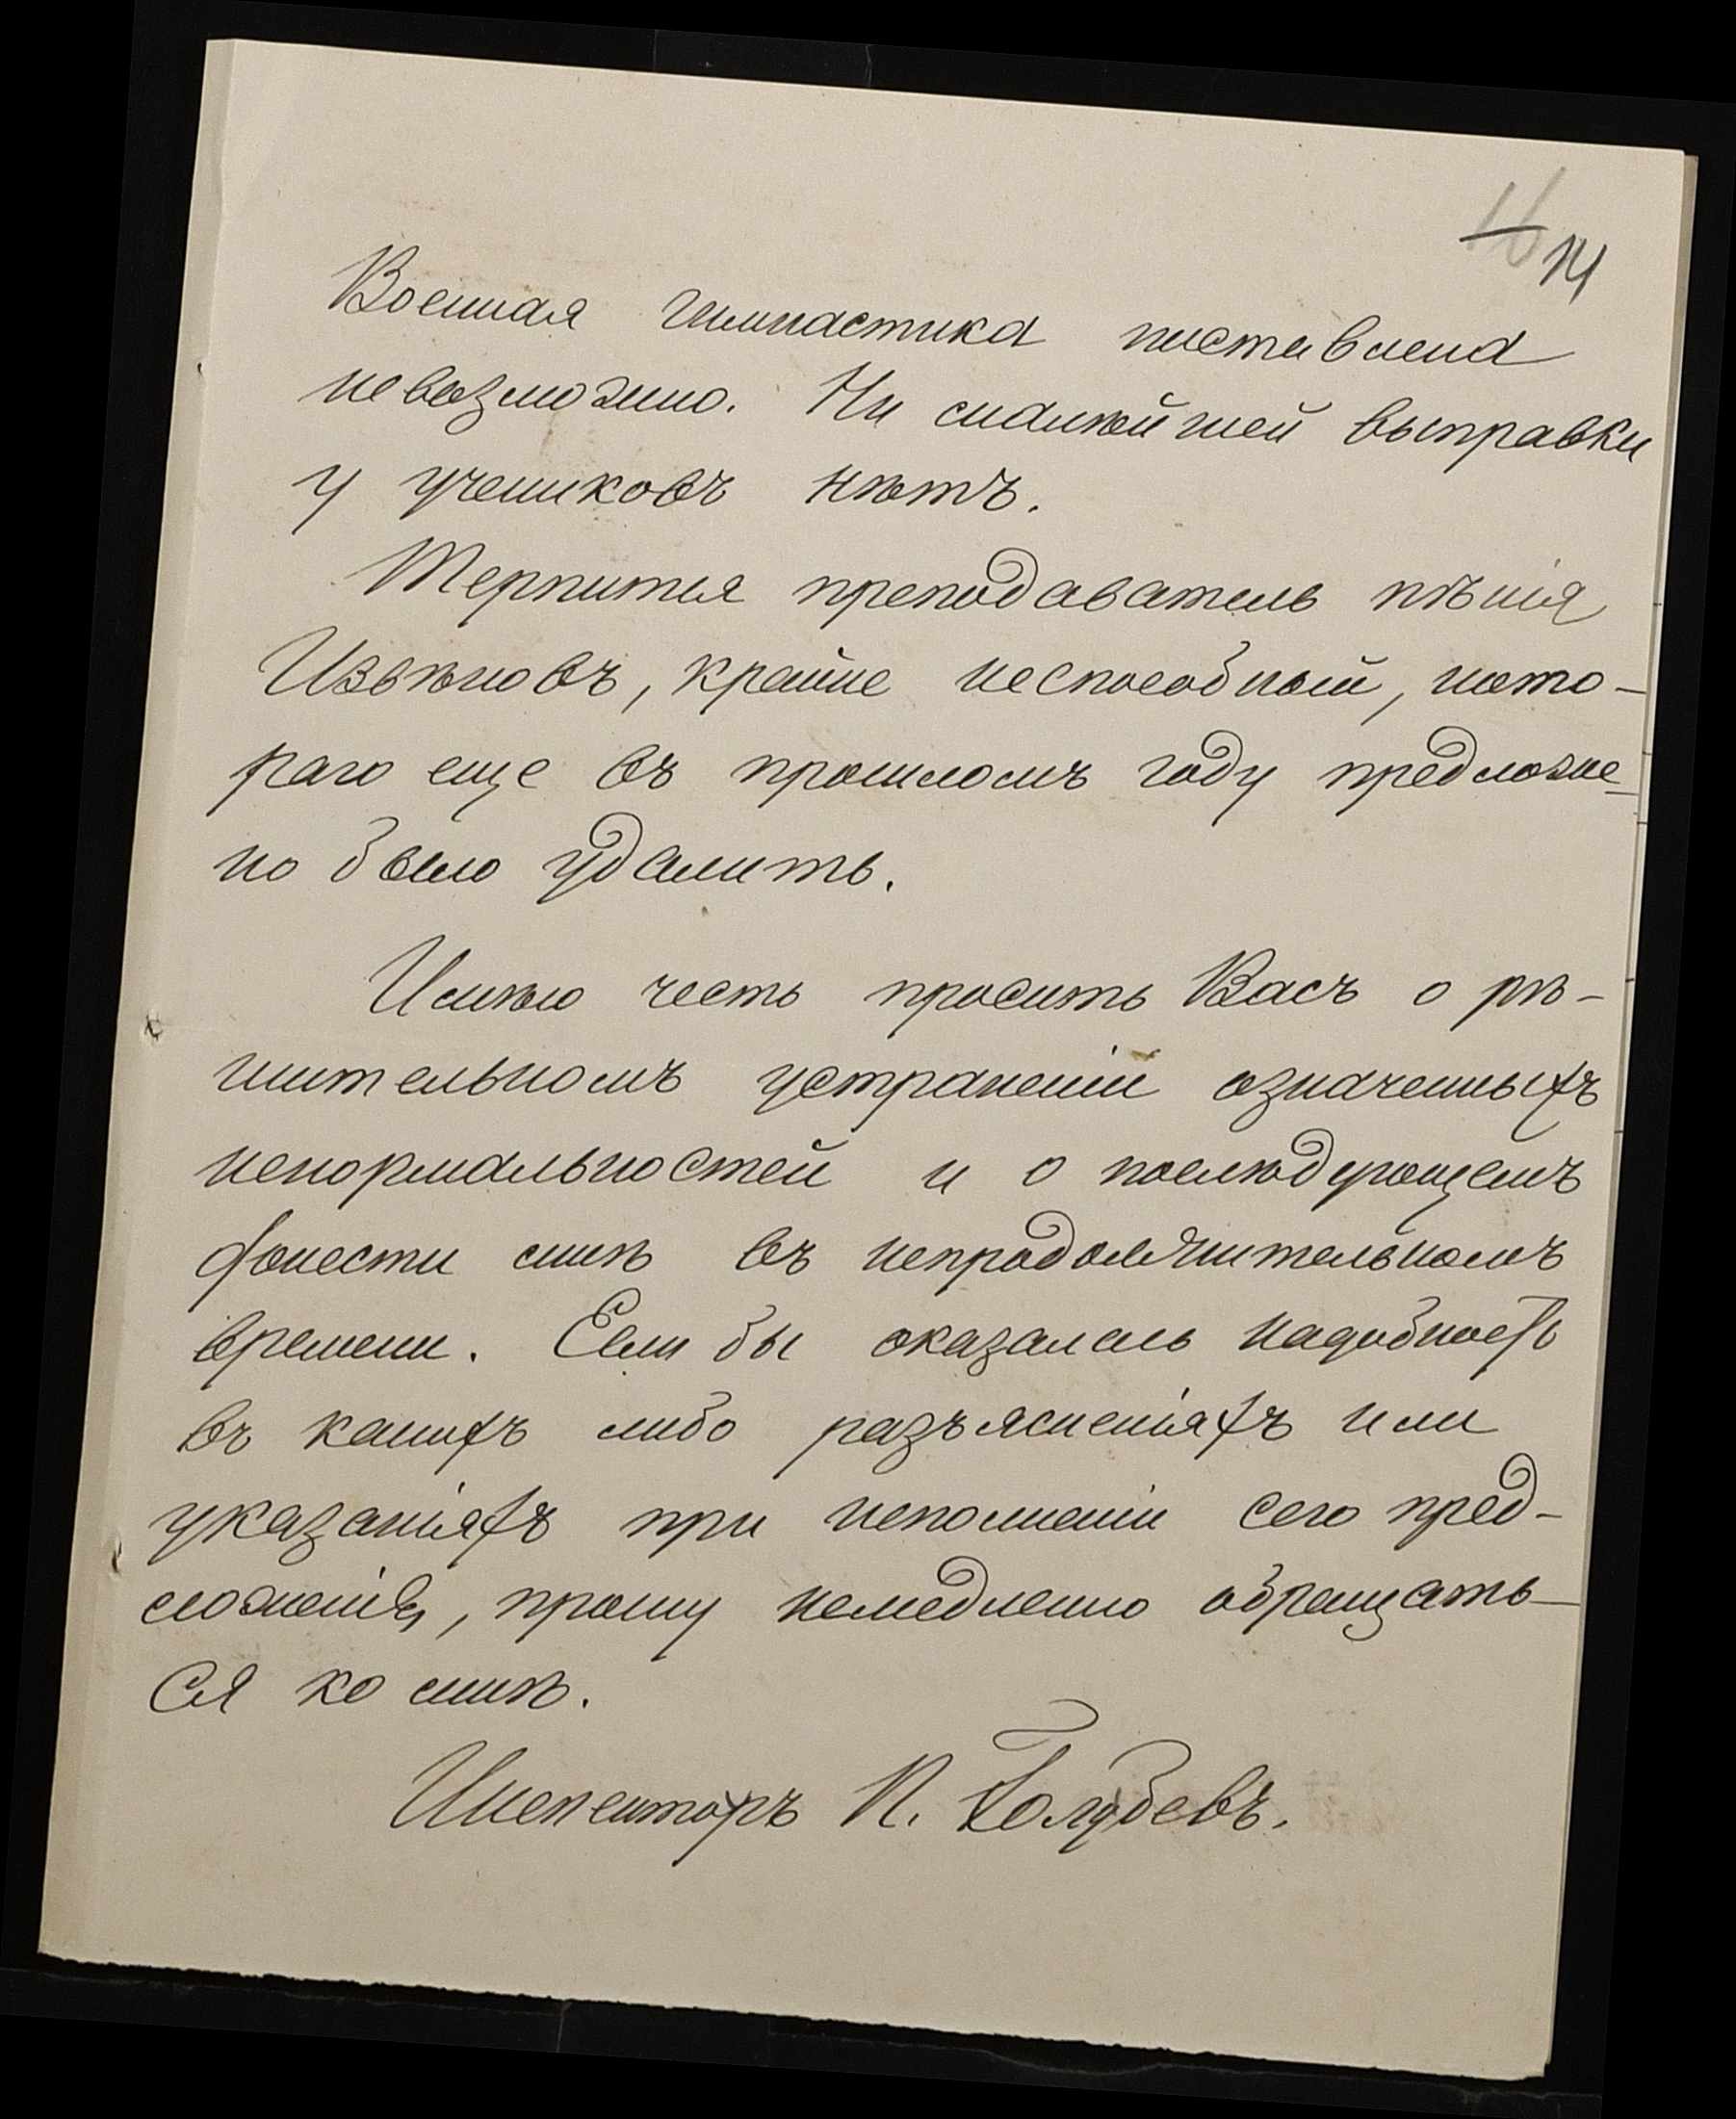 14
Военная гимнастика поставлена
невозможно. Ни малѣйшей выправки
у учениковъ нѣтъ.
Терпится преподаватель пѣнія
Извѣковъ, крайне неспособный, кото-
раго еще въ прошломъ году предложе-
но было удалить.
Имѣю честь просить Васъ о рѣ-
шительномъ устраненіи означенныхъ
ненормальностей и о послѣдующемъ
донести мнѣ въ непродолжительномъ
времени. Если бы оказалась надобность
въ какихъ либо разъясненіяхъ или
указаніяхъ при исполненіи сего пред-
ложенія, прошу немедленно обращать-
ся ко мнѣ.
Инспекторъ П. Голубевъ.